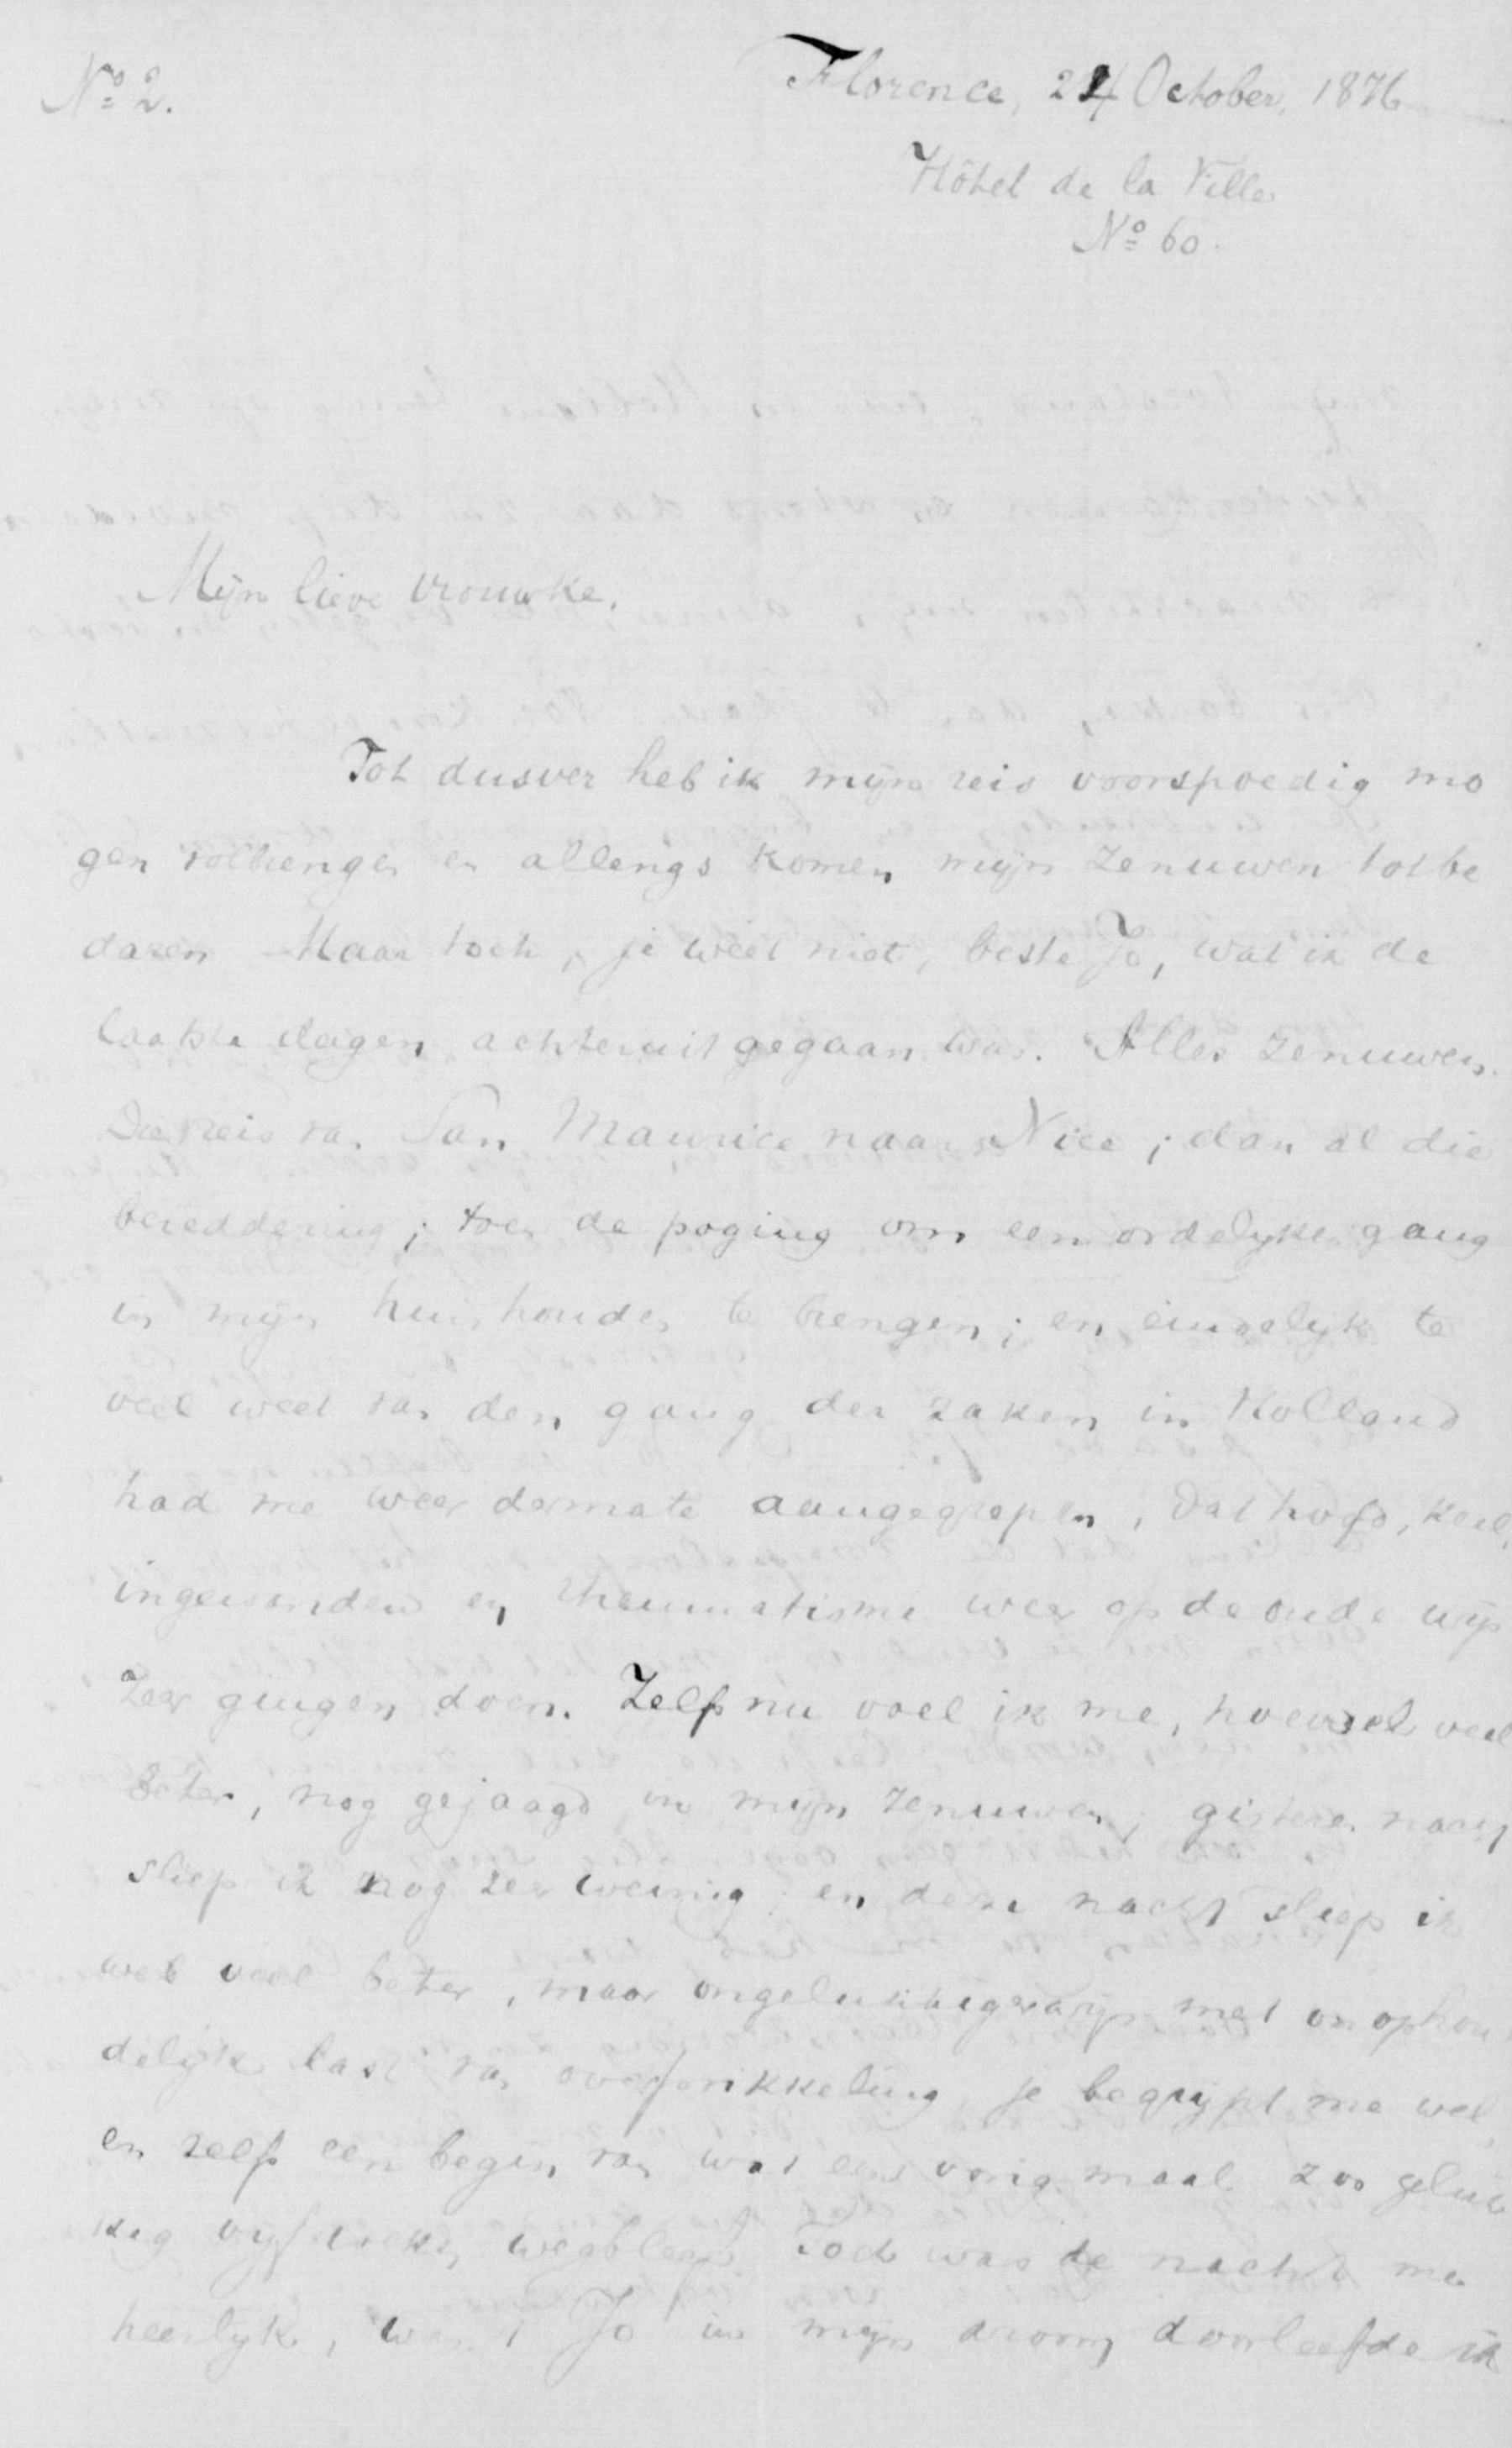 Nº 2.
Florence, 24 October, 1876
Hôtel de la Ville
Nº 60.
Mijn lieve vrouwke,
Tot dusver heb ik mijn reis voorspoedig mo
gen volbrengen en allengs komen mijn zenuwen tot be
daren Maar toch, je weet niet, beste Jo, wat ik de
laatste dagen achteruit gegaan was. Alles zenuwen.
De reis van San Maurice naar Nice; dan al die
bereddering; toen de poging om een ordelyke gang
in mijn huishouden te brengen; en eindelyk te
veel weet van den gang der zaken in Holland
had me weer dermate aangegrepen, dat hoofd, keel,
ingewanden en rheumatisme weer op de oude wijs
zeer gingen doen. Zelfs nu voel ik me, hoewel veel
beter, nog gejaagd in mijn zenuwen; gisteren nacht
sliep ik nog zeer weinig en deze nacht sliep ik
wel veel beter, maar ongelukkigerwijs met onophou
delijke last van overprikkeling, je begrijpt me wel,
en zelfs een begin van wat een vorig maal zoo geluk
kig vijf weken wegbleef. Toch was de nacht me
heerlyk, want Jo in mijn droom doorleefde ik